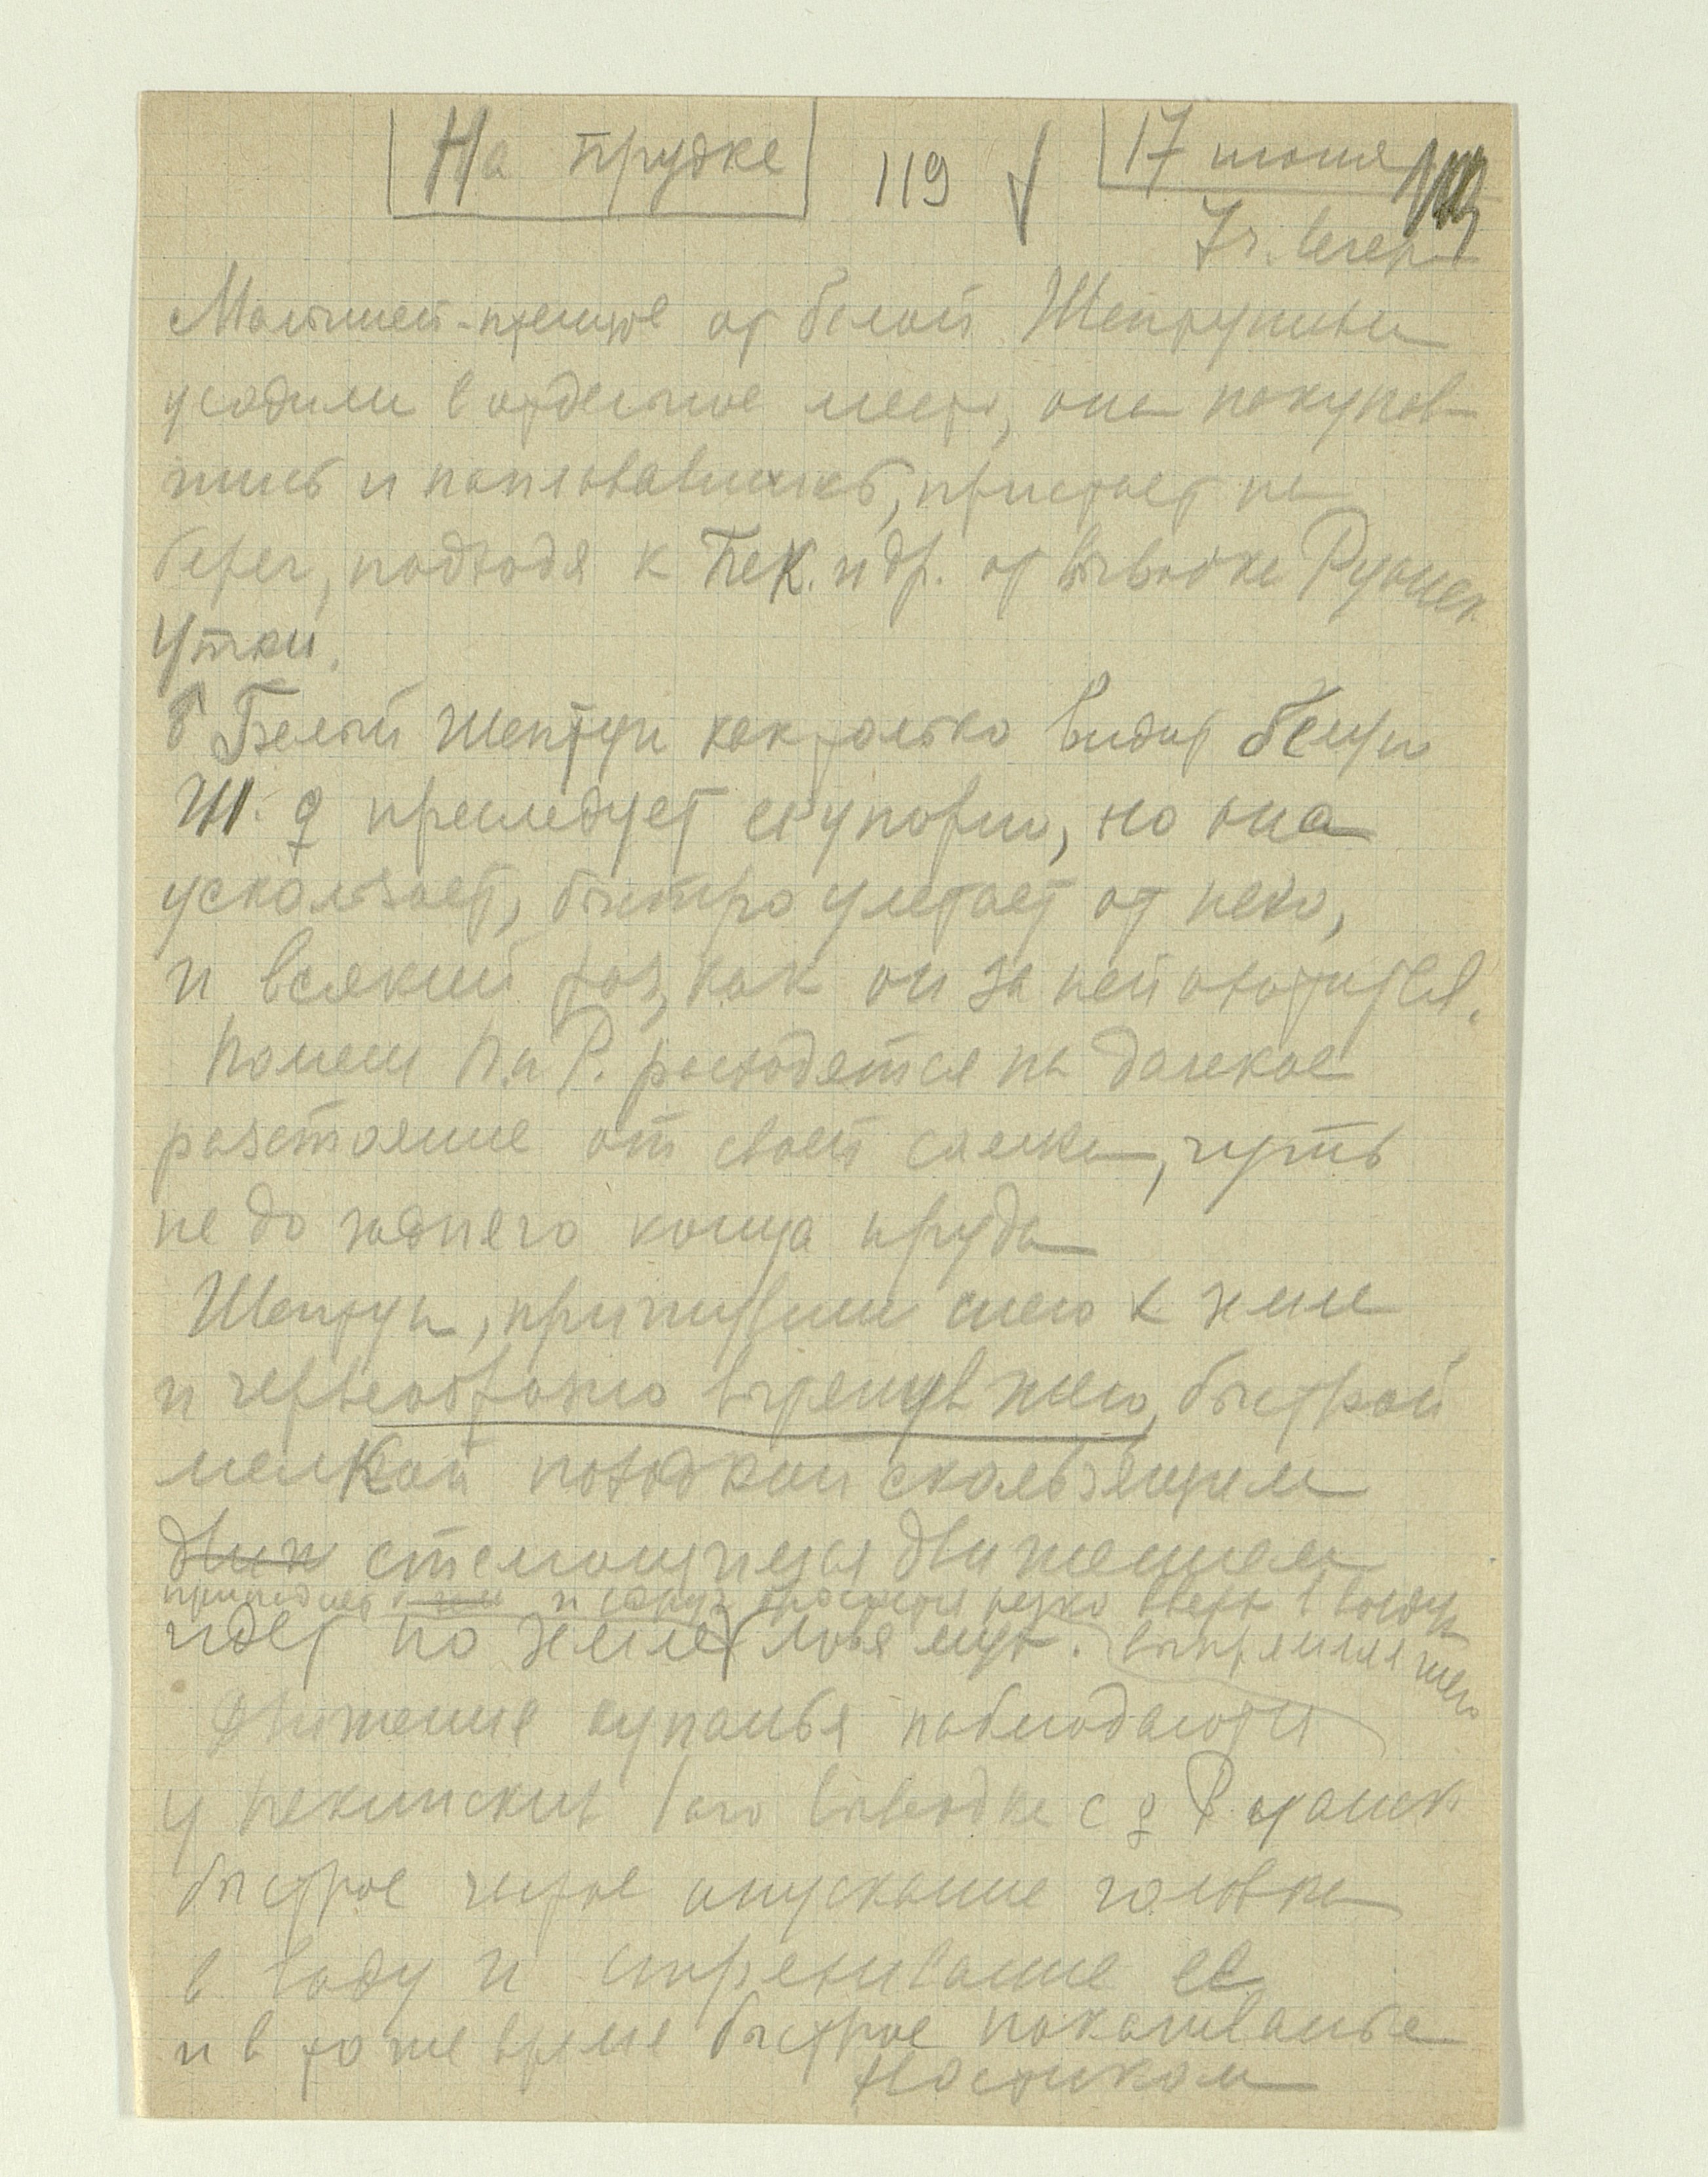 На прудке 119 √ 17 июня
7 ч. вечера
Малышей-птенцов от белой Шептуньи
усадили в отдельное место, она покупав-
шись и поплававшись, пристает на
берег, подходя к Пек. и др. от выводка Руанск
утки.
Белый Шептун как только видит белую
Ш. ♀ преследует ее упорно, но она
ускользает, быстро улетает от него,
и всякий раз, как он за ней охотится.
П. и Р. расходятся на далекое
разстояние от своей самки, чуть
не до заднего конца пруда
Шептун, припустив шею к земле
и червеобразно вытянув шею, быстрой
мелкой походкой скользящим
движ стелющимся движением
и вдруг бросается резко вверх в воздух
идет по земле ловя мух. выпрямляя шею
Движение купанья наблюдаются
у пекинских 1ого выводка с ♀ Руанск
быстрое частое опускание головки
в воду и стряхивание ее
и в то же время быстрое покачиванье
носиком